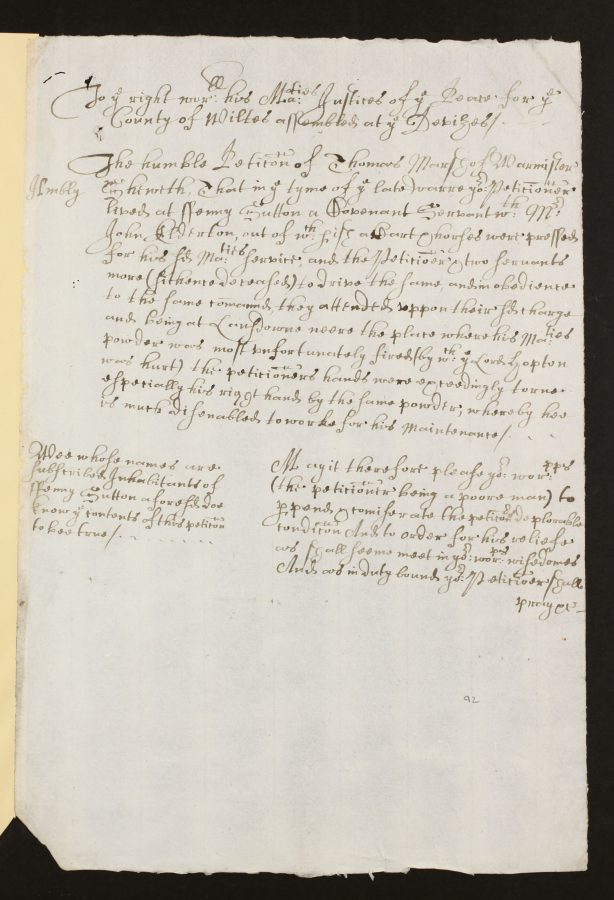 To ye right worll: his Maties: Justices of ye Peace for ye
County of Wiltes assembled at ye Devizes /
The humble Peticōn of Thomas Marsh of Warmister
Humbly
Sheweth That in ye tyme of ye late warre yor: Peticioner
lived at ffenny Sutton a Covenant Servant wth: Mr:
John Elderton, out of wch: his Cart & horses were pressed
for his sd Maties: service, and the Peticōer & two servants
more (sithence deceased) to drive the same, and in obedience
to the same comaund they attended uppon their sd charge
and being at Lansdowne neere the place where his Maties
powder was most unfortunately fired (by wch: ye Lord Hopton
was hurt) the peticōners hands were exceedingly torne
especially his right hand by the same powder, whereby hee
is much disenabled to worke for his Maintenance /
Wee whose names are
subscribed Inhabitants of
ffenny Sutton aforesd doe
know ye contents of this peticōn
to bee true /
May it therefore please yor: worpps
(the peticōner being a poore man) to
& comiserate the peticōers deplorable
condicōn And to order for his reliefe
as shall seeme meet in yor: worps: wisedomes
And as in duty bound yor: Peticōer shall
pray &c
92